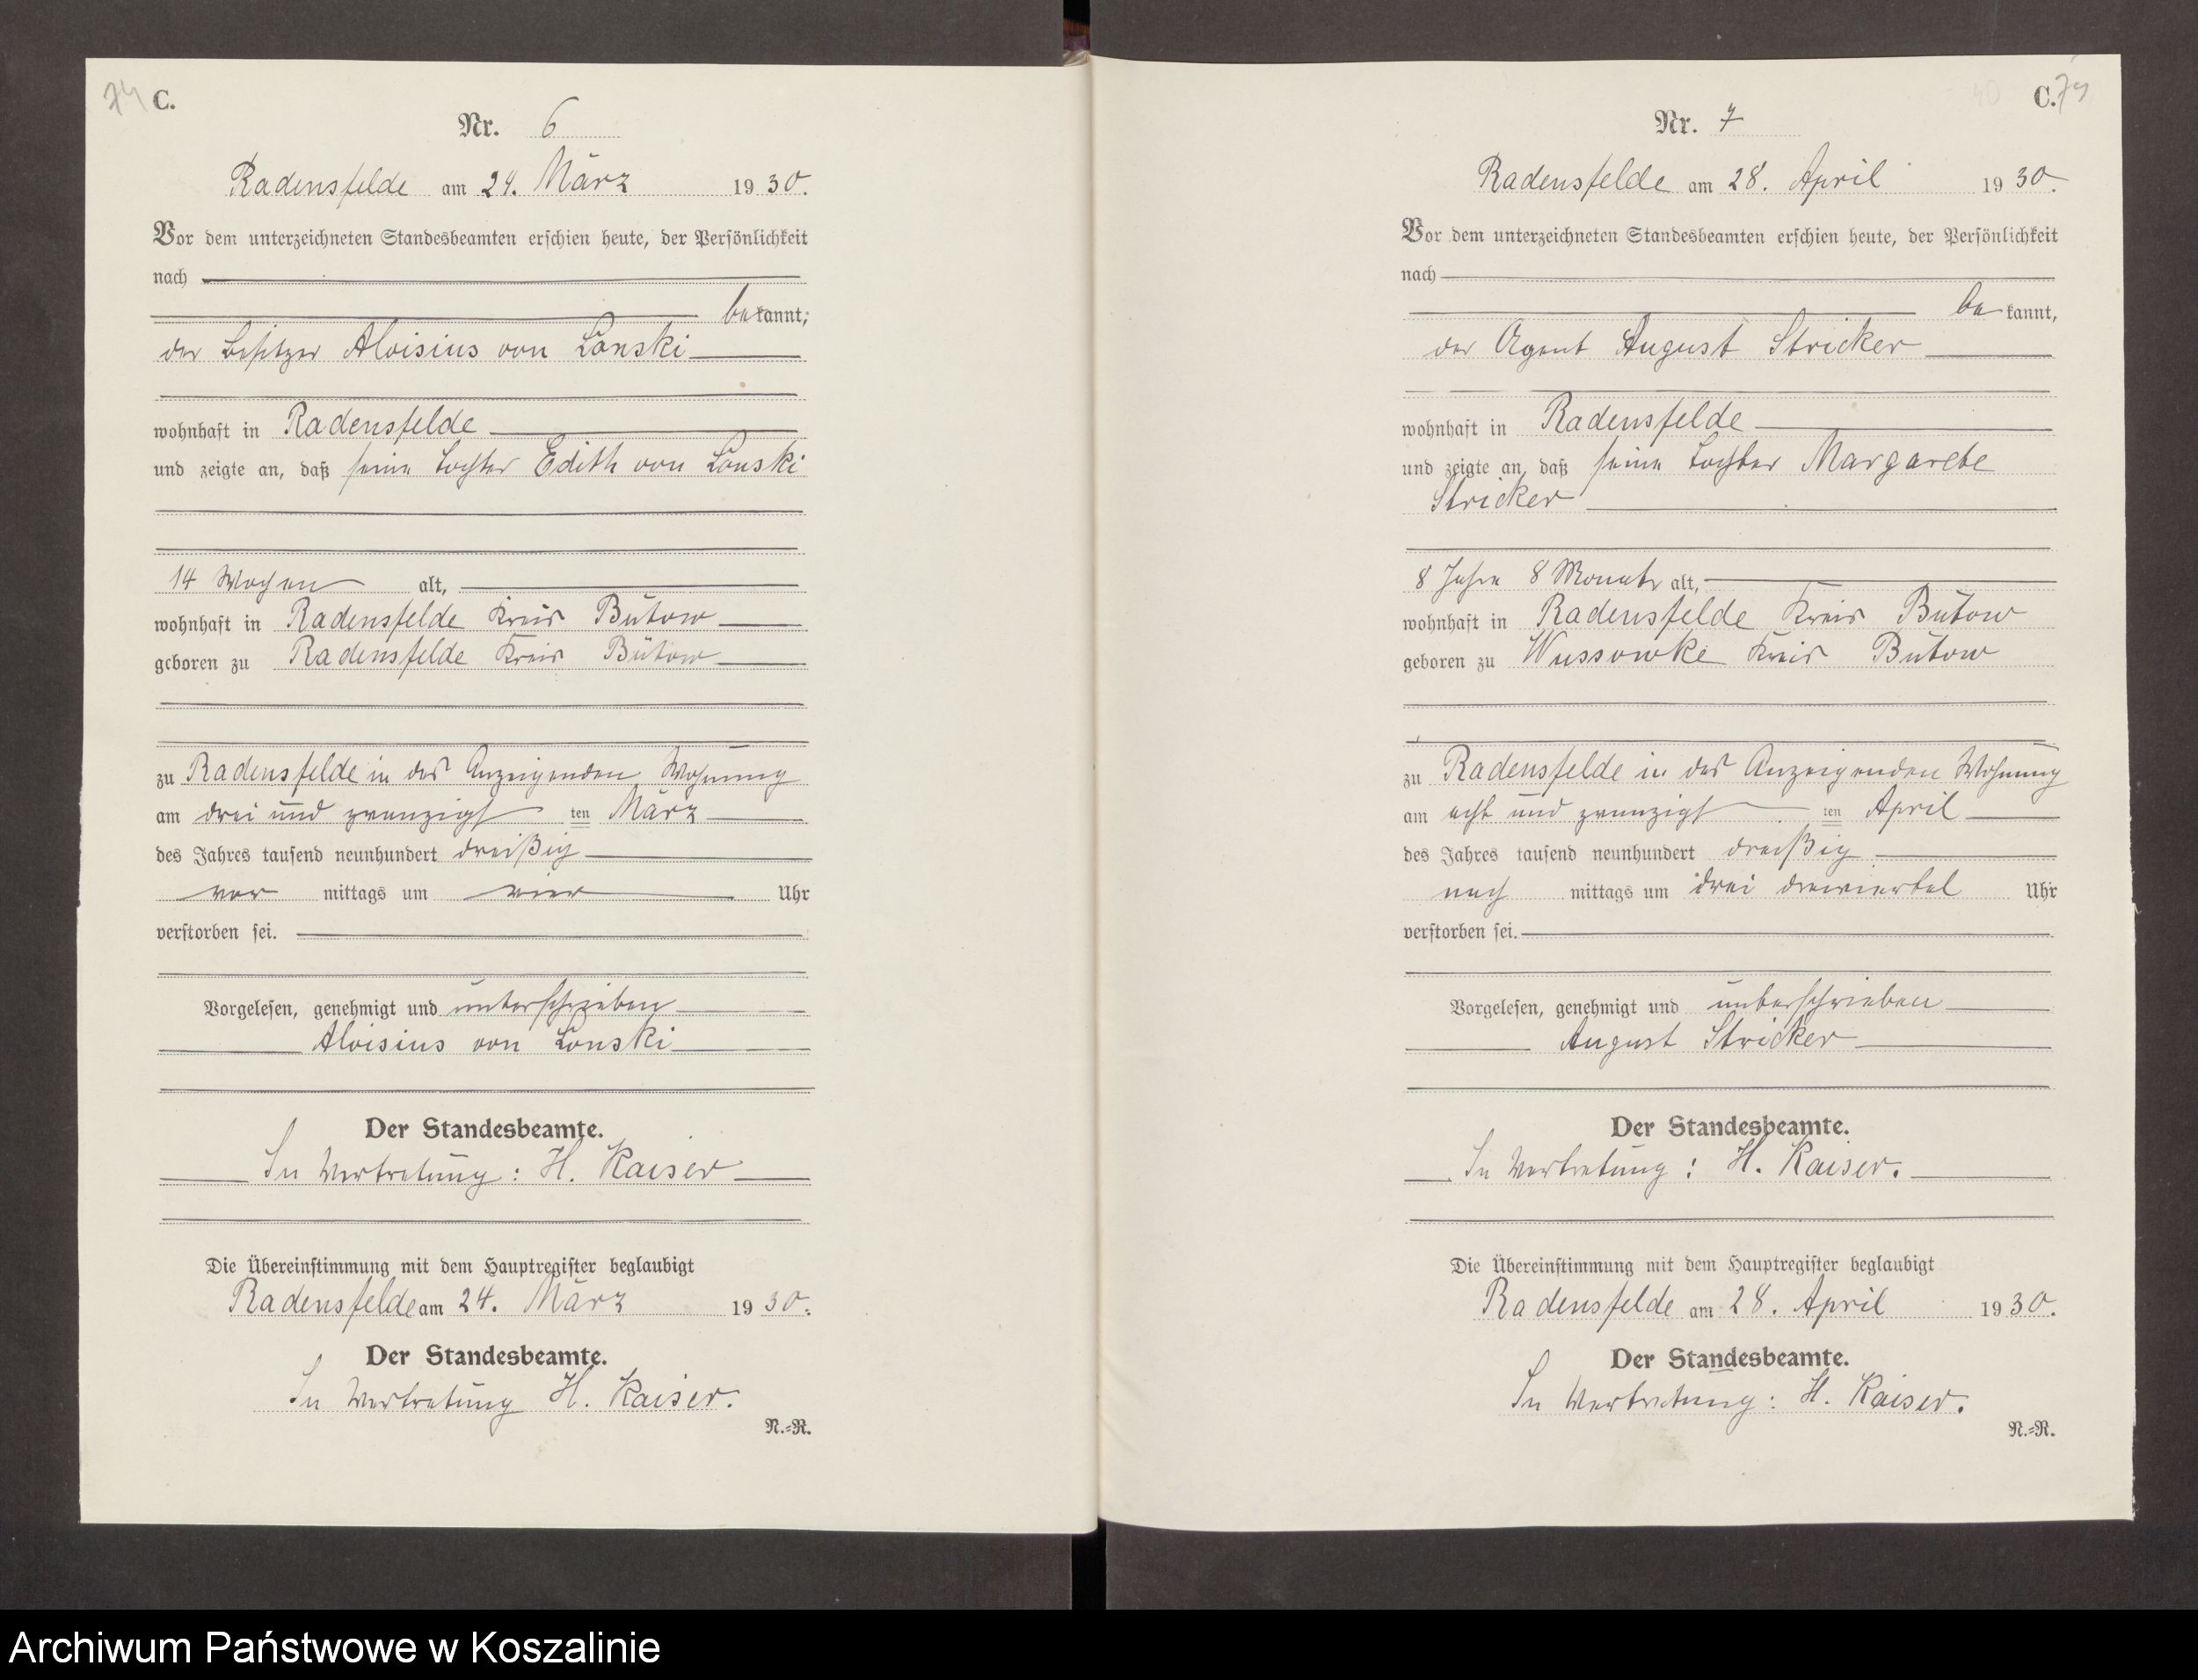 74 C.
Nr. 6
Radensfelde am 24. März 1930.
Vor dem unterzeichneten Standesbeamten erschien heute, der Persönlichkeit
nach
bekannt,
der Besitzer Aloisius von Lonski
wohnhaft in Radensfelde
und zeigte an, daß seine Tochter Edith von Lonski
14 Wochen alt,
wohnhaft in Radensfelde Kreis Bütow
geboren zu Radensfelde Kreis Bütow
zu Radensfelde in des Anzeigenden Wohnung
am drei und zwanzigsten März
des Jahres tausend neunhundert dreißig
vor mittags um vier Uhr
verstorben sei.
Vorgelesen, genehmigt und unterschrieben
Aloisius von Lonski
Der Standesbeamte.
In Vertretung: H. Kaiser
Die Übereinstimmung mit dem Hauptregister beglaubigt
Radensfelde am 24. März 1930.
Der Standesbeamte.
In Vertretung H. Kaiser.
N.=R.
C.
Nr. 7
Radensfelde am 28. April 1930.
Vor dem unterzeichneten Standesbeamten erschien heute, der Persönlichkeit
nach
bekannt,
der Agent August Stricker
wohnhaft in Radensfelde
und zeigte an, daß seine Tochter Margarete
Stricker
8 Jahre 8 Monate alt,
wohnhaft in Radensfelde Kreis Bütow
geboren zu Wussowke Kreis Bütow
zu Radensfelde in des Anzeigenden Wohnung
am acht und zwanzigsten April
des Jahres tausend neunhundert dreißig
nach mittags um drei dreiviertel Uhr
verstorben sei.
Vorgelesen, genehmigt und unterschrieben
August Stricker
Der Standesbeamte.
In Vertretung: H. Kaiser.
Die Übereinstimmung mit dem Hauptregister beglaubigt
Radensfelde am 28. April 1930.
Der Standesbeamte.
In Vertretung: H. Kaiser.
N.=R.
Archiwum Państwowe w Koszalinie